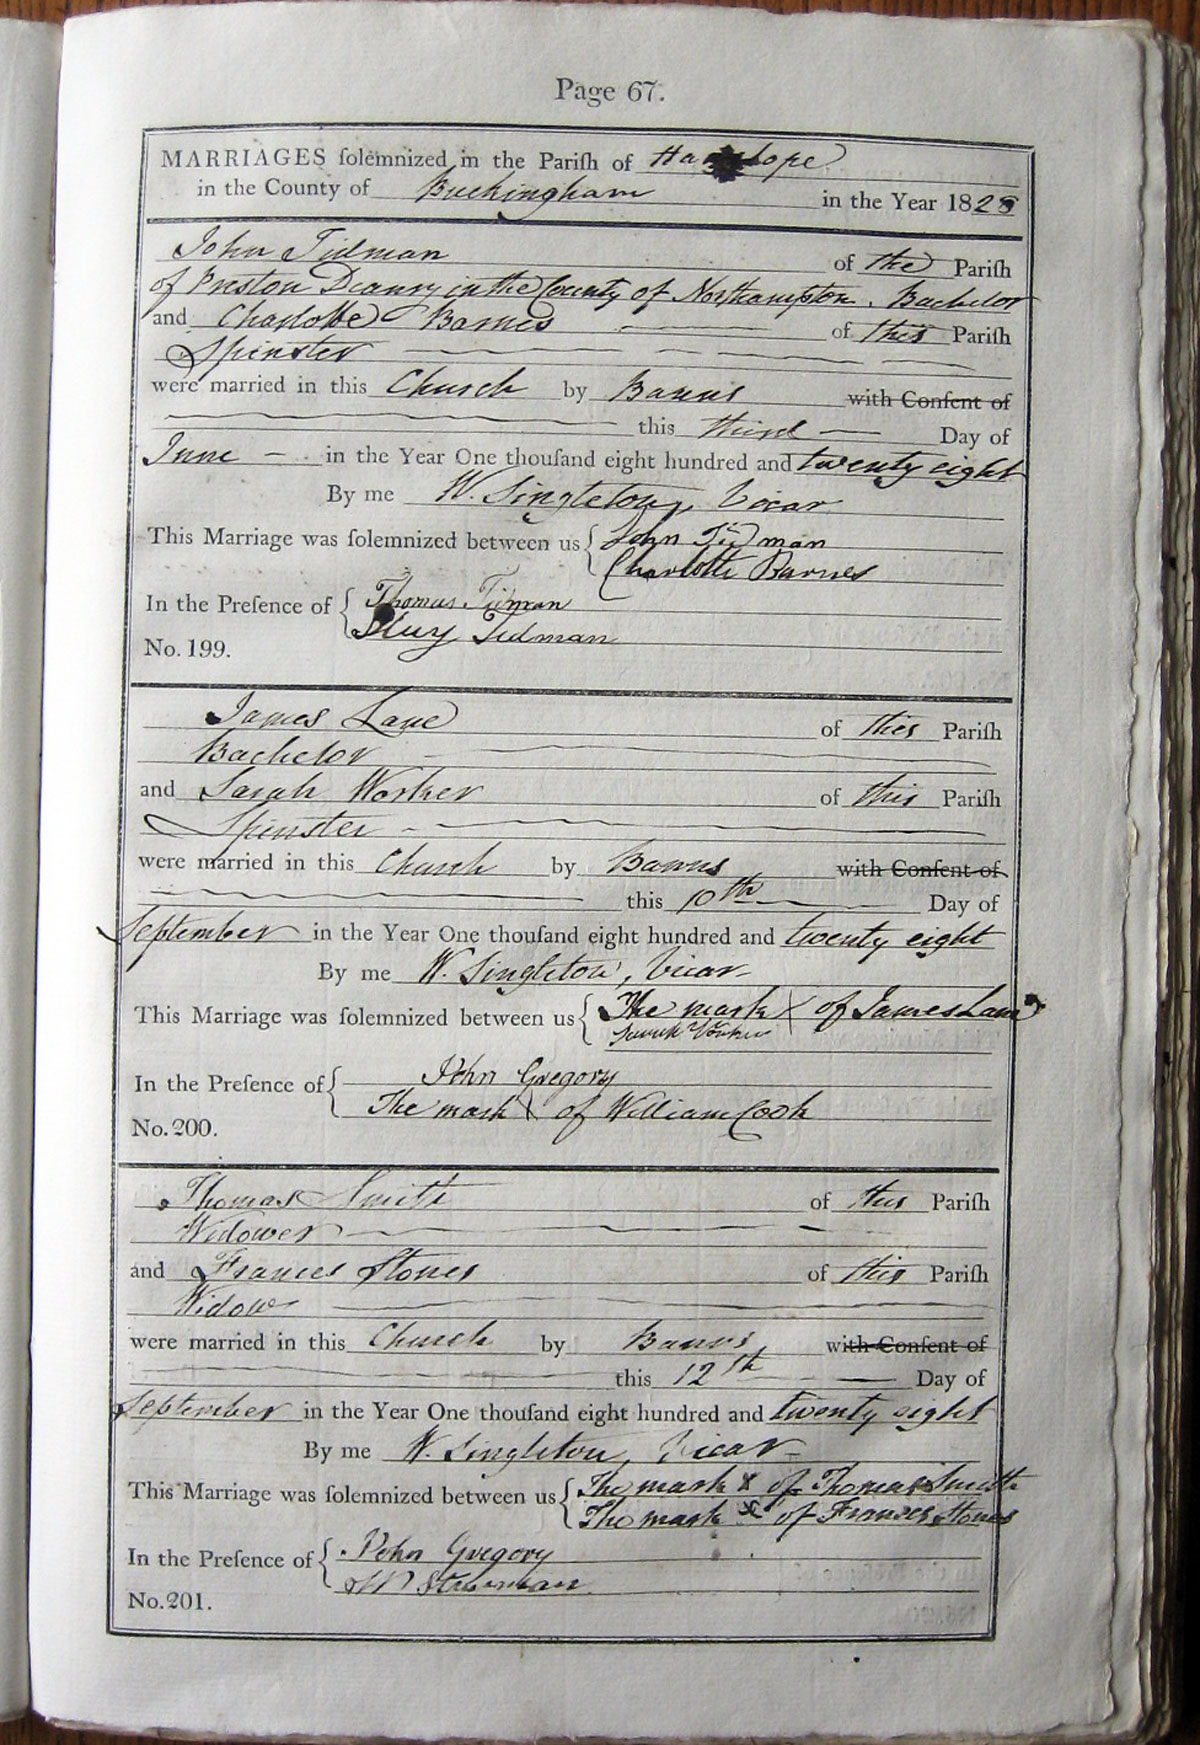 Page 67.
MARRIAGES ſolemnized in the Pariſh of Ha lope
in the County of Buckingham in the Year 1828
John Tidman of the Pariſh
of Preston Deanry in the County of Northampton. Bachelor
and Charlotte Barnes of this Pariſh
Spinster
were married in this Church by Banns with Conſent of
this third Day of
June in the Year One thouſand eight hundred and twenty eight
By me W. Singleton, Vicar
This Marriage was ſolemnized between us { John Tidman
Charlotte Barnes
In the Preſence of { Thomas Tidman
Tidman
No. 199.
James Lane of this Pariſh
Bachelor
and Sarah Worker of this Pariſh
Spinster
were married in this Church by Banns with Conſent of
this 10th Day of
September in the Year One thouſand eight hundred and twenty eight
By me W. Singleton, Vicar
This Marriage was ſolemnized between us { The mark X of James Lane
Sarah Worker
In the Preſence of { John Gregory
The mark X of William Cook
No. 200.
Thomas Smith of this Pariſh
Widower
and Frances Stones of this Pariſh
Widow
were married in this Church by Banns with Conſent of
this 12th Day of
September in the Year One thouſand eight hundred and twenty eight
By me W. Singleton, Vicar
This Marriage was ſolemnized between us { The mark X of Thomas Smith
The mark X of Frances Stones
In the Preſence of { John Gregory
No. 201.